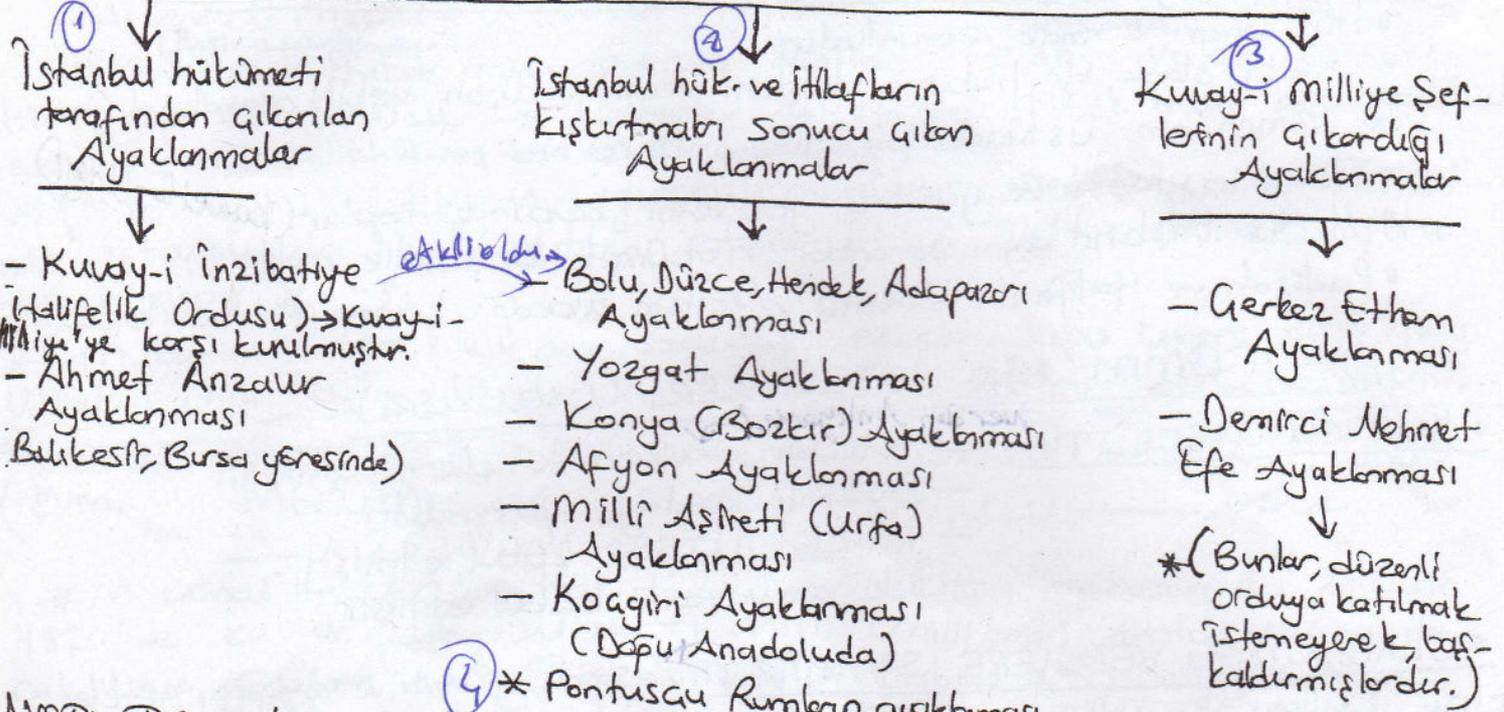 1
İstanbul hükümeti
tarafından çıkarılan
Ayaklanmalar
- Kuvay-i İnzibatiye
(Halifelik Ordusu) → Kuvay-i
Milliye'ye karşı kurulmuştur.
- Ahmet Anzavur
Ayaklanması
Balıkesir, Bursa yöresinde)
2
İstanbul hük. ve İtilafların
Kışkırtmaları sonucu çıkan
Ayaklanmalar
etkili oldu
- Bolu, Düzce, Hendek, Adapazarı
Ayaklanması
- Yozgat Ayaklanması
- Konya (Bozkır) Ayaklanması
- Afyon Ayaklanması
- Milli Aşireti (Urfa)
Ayaklanması
- Koçgiri Ayaklanması
(Doğu Anadoluda)
4 * Pontusçu Rumların ayaklanması
3
Kuvay-i Milliye Şef-
lerinin Çıkardığı
Ayaklanmalar
- Çerkez Ethem
Ayaklanması
- Demirci Mehmet
Efe Ayaklanması
* (Bunlar, düzenli
orduya katılmak
istemeyerek, baş-
kaldırmışlardır.)